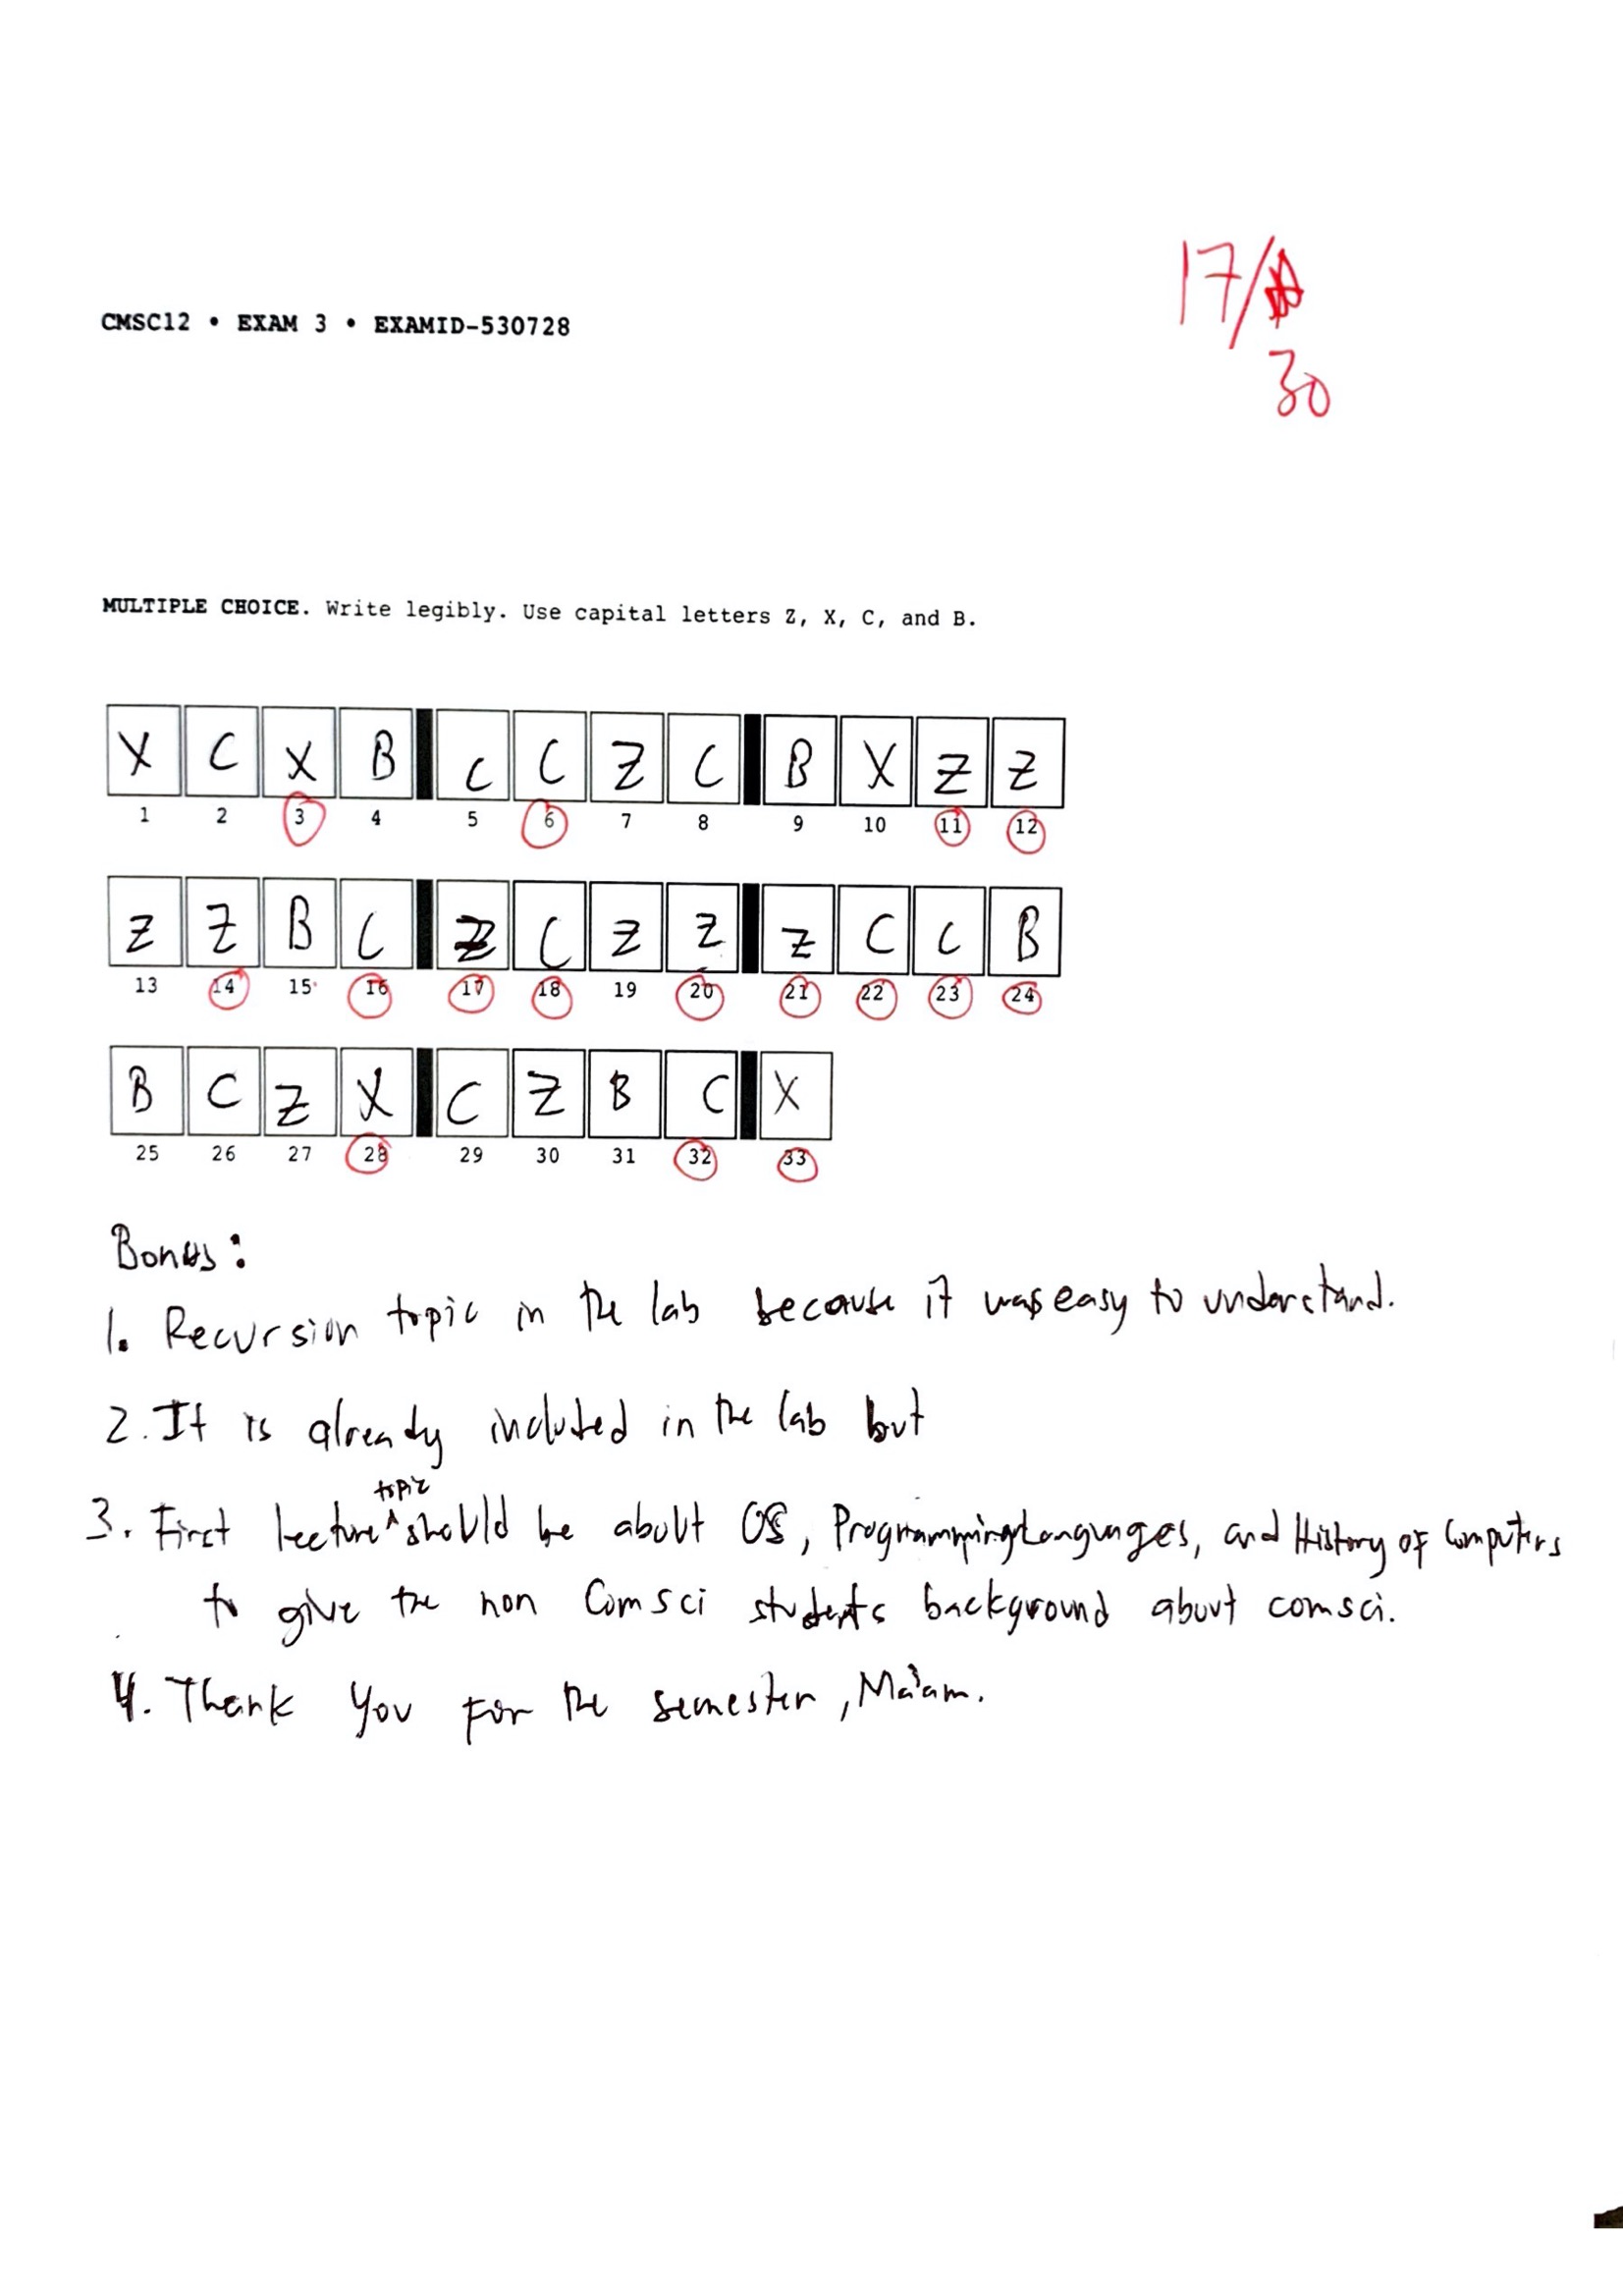 17/
30
CMSC12 • EXAM 3 • EXAMID-530728
MULTIPLE CHOICE. Write legibly. Use capital letters Z, X, C, and B.
X C X B C C Z C B X Z Z
1 2 3 4 5 6 7 8 9 10 11 12
Z Z B C Z C Z Z Z C C B
13 14 15 16 17 18 19 20 21 22 23 24
B C Z X C Z B C X
25 26 27 28 29 30 31 32 33
Bonus:
1. Recursion topic in the lab because it was easy to understand.
2. It is already included in the lab but
3. First lecture topic should be about OS, Programming Languages, and History of Computers
to give the non Comsci students background about comsci.
4. Thank you for the semester, Ma'am.